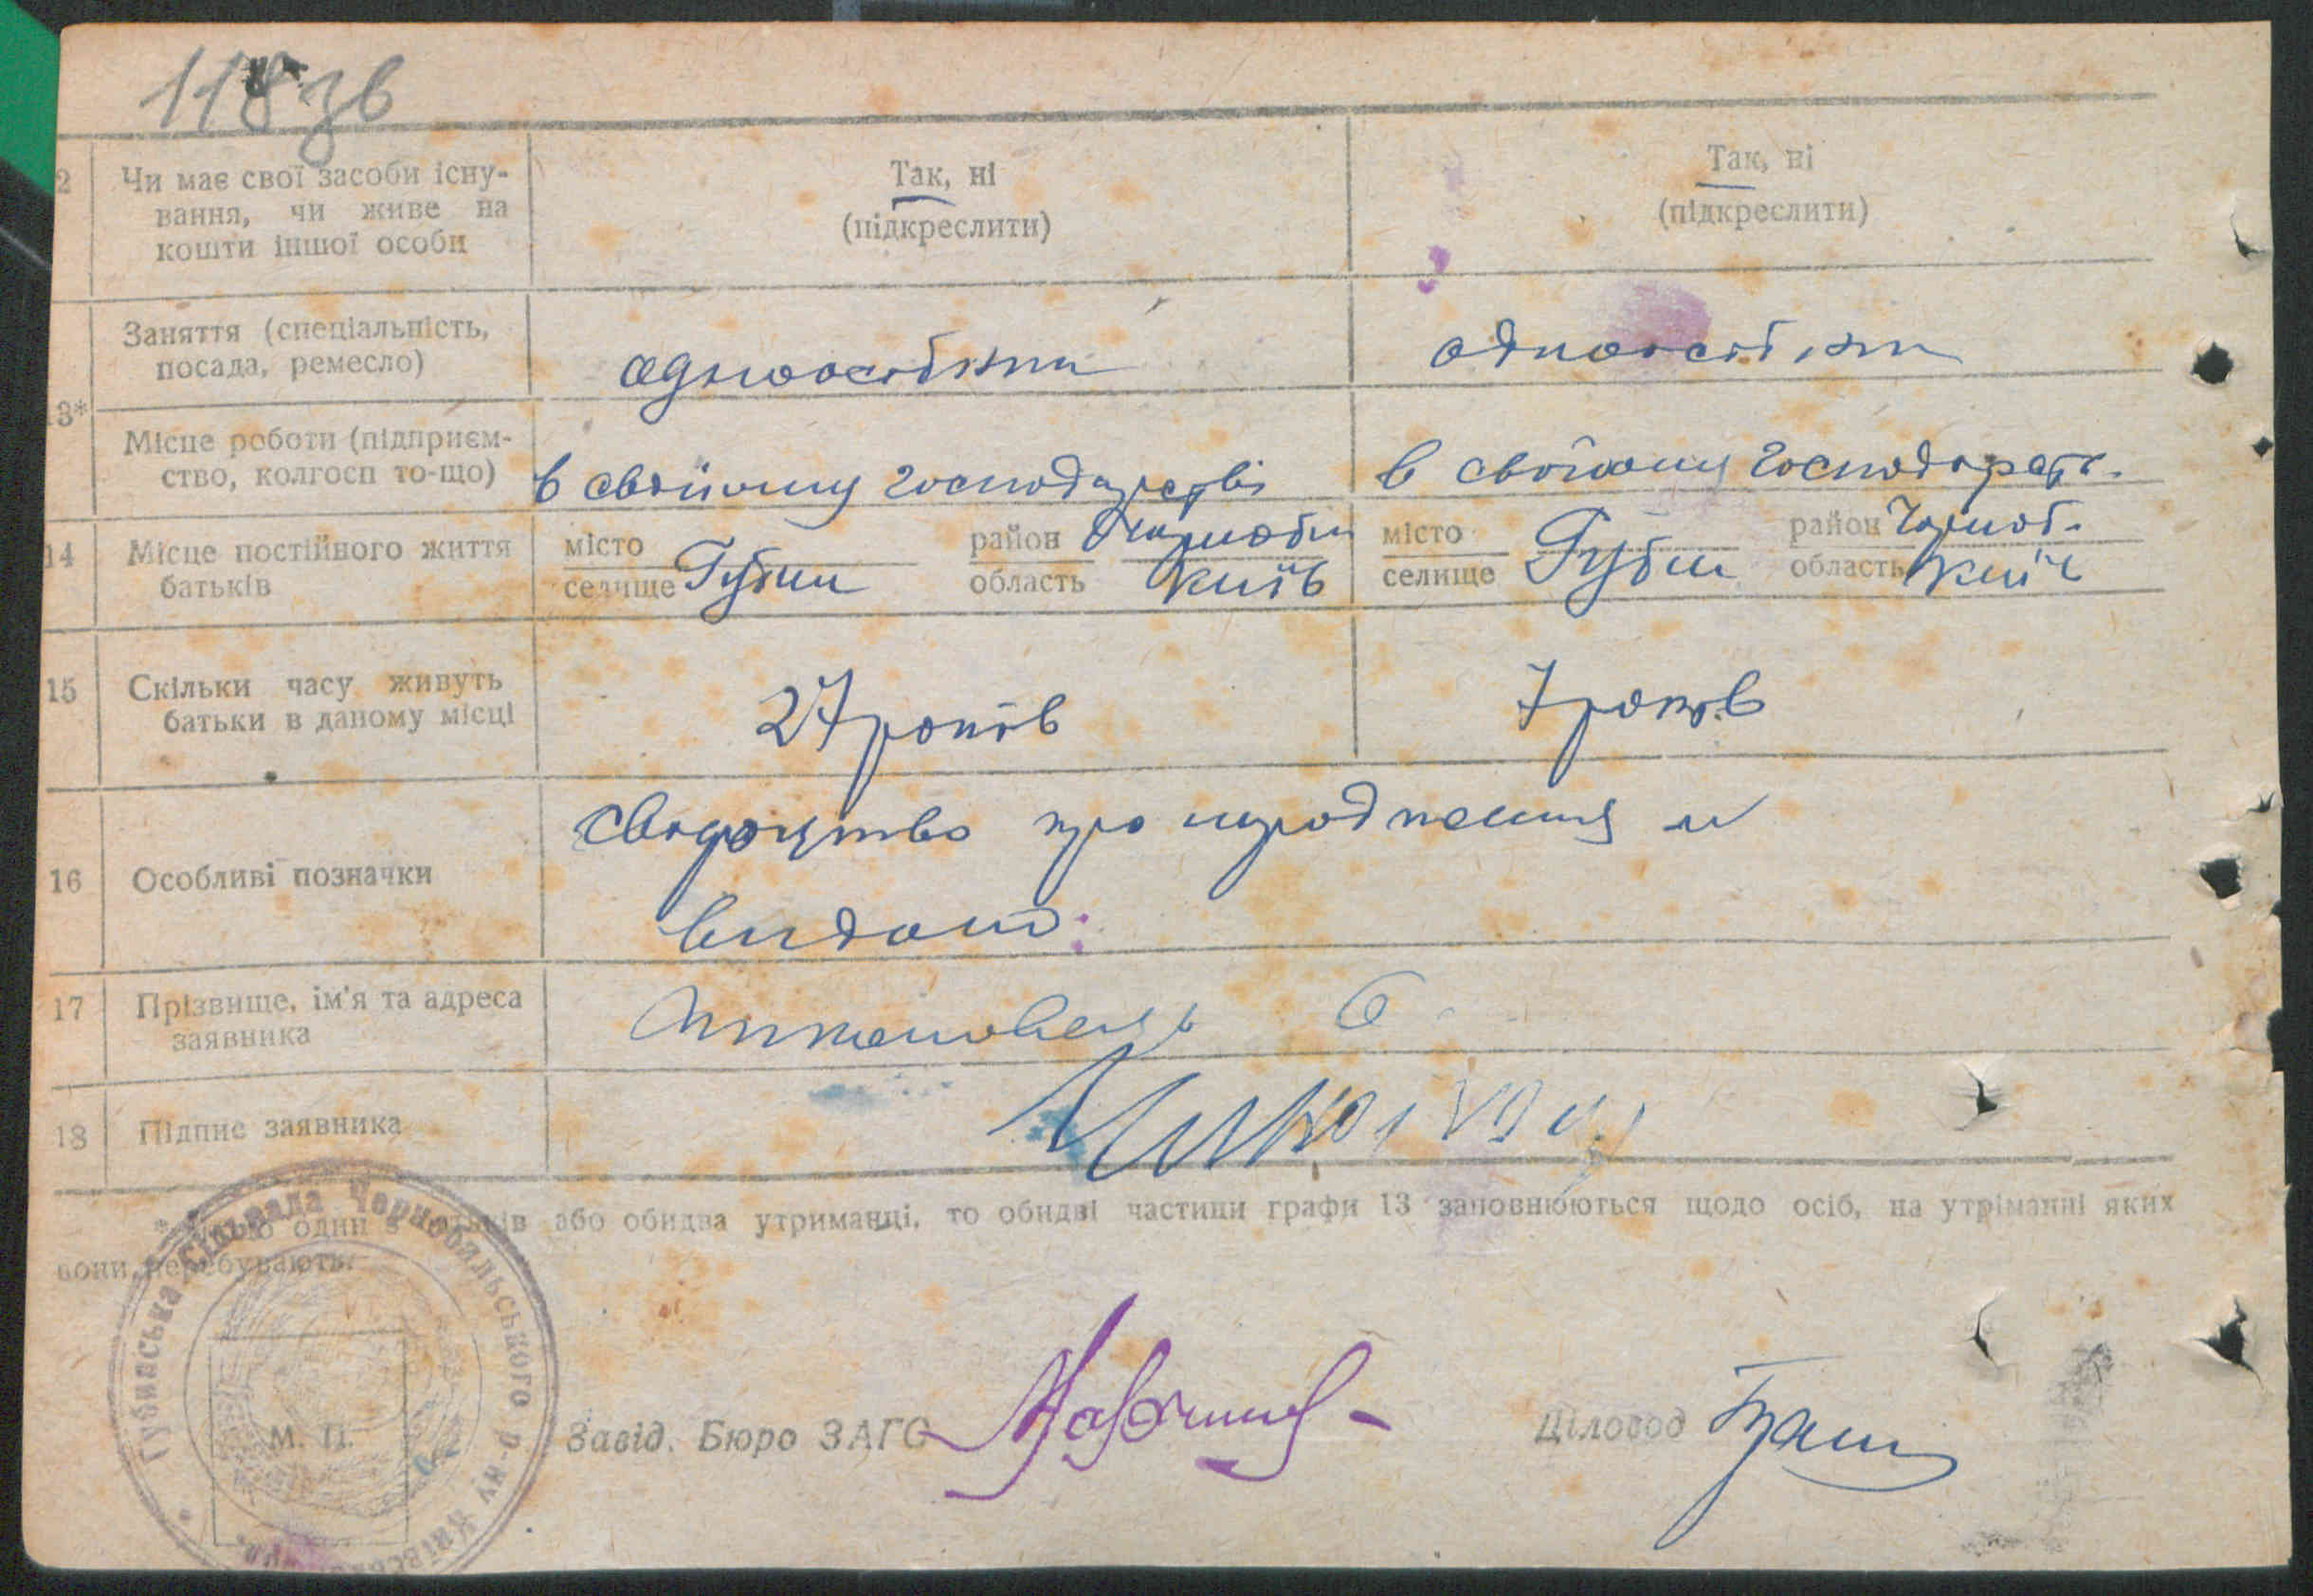 118 зв
2 Чи має свої засоби існу-
вання, чи живе на
кошти іншої особи
Так, ні
(підкреслити)
Так, ні
(підкреслити)
13*
Заняття (спеціальність,
посада, ремесло)
одноосібник
одноосібник
Місце роботи (підприєм-
ство, колгосп то-що)
в своїому господарстві
в своїому господарст.
14 Місце постійного життя
батьків
місто
селище Губин
район Чорнобил
область Київ
місто
селище Губин
район Чорноб.
область Київ
15 Скільки часу живуть
батьки в даному місці
27 років
7 років
16 Особливі позначки
свідоцтво про народження
видано
17 Прізвище, ім'я та адреса
заявника
18 Підпис заявника
один з батьків або обидва утриманці, то обидві частини графи 13 заповнюються щодо осіб, на утріманні яких
вони перебувають.
Губинська сільрада Чернобильського р-ну Київської
М. П.
Завід. Бюро ЗАГС
Діловод